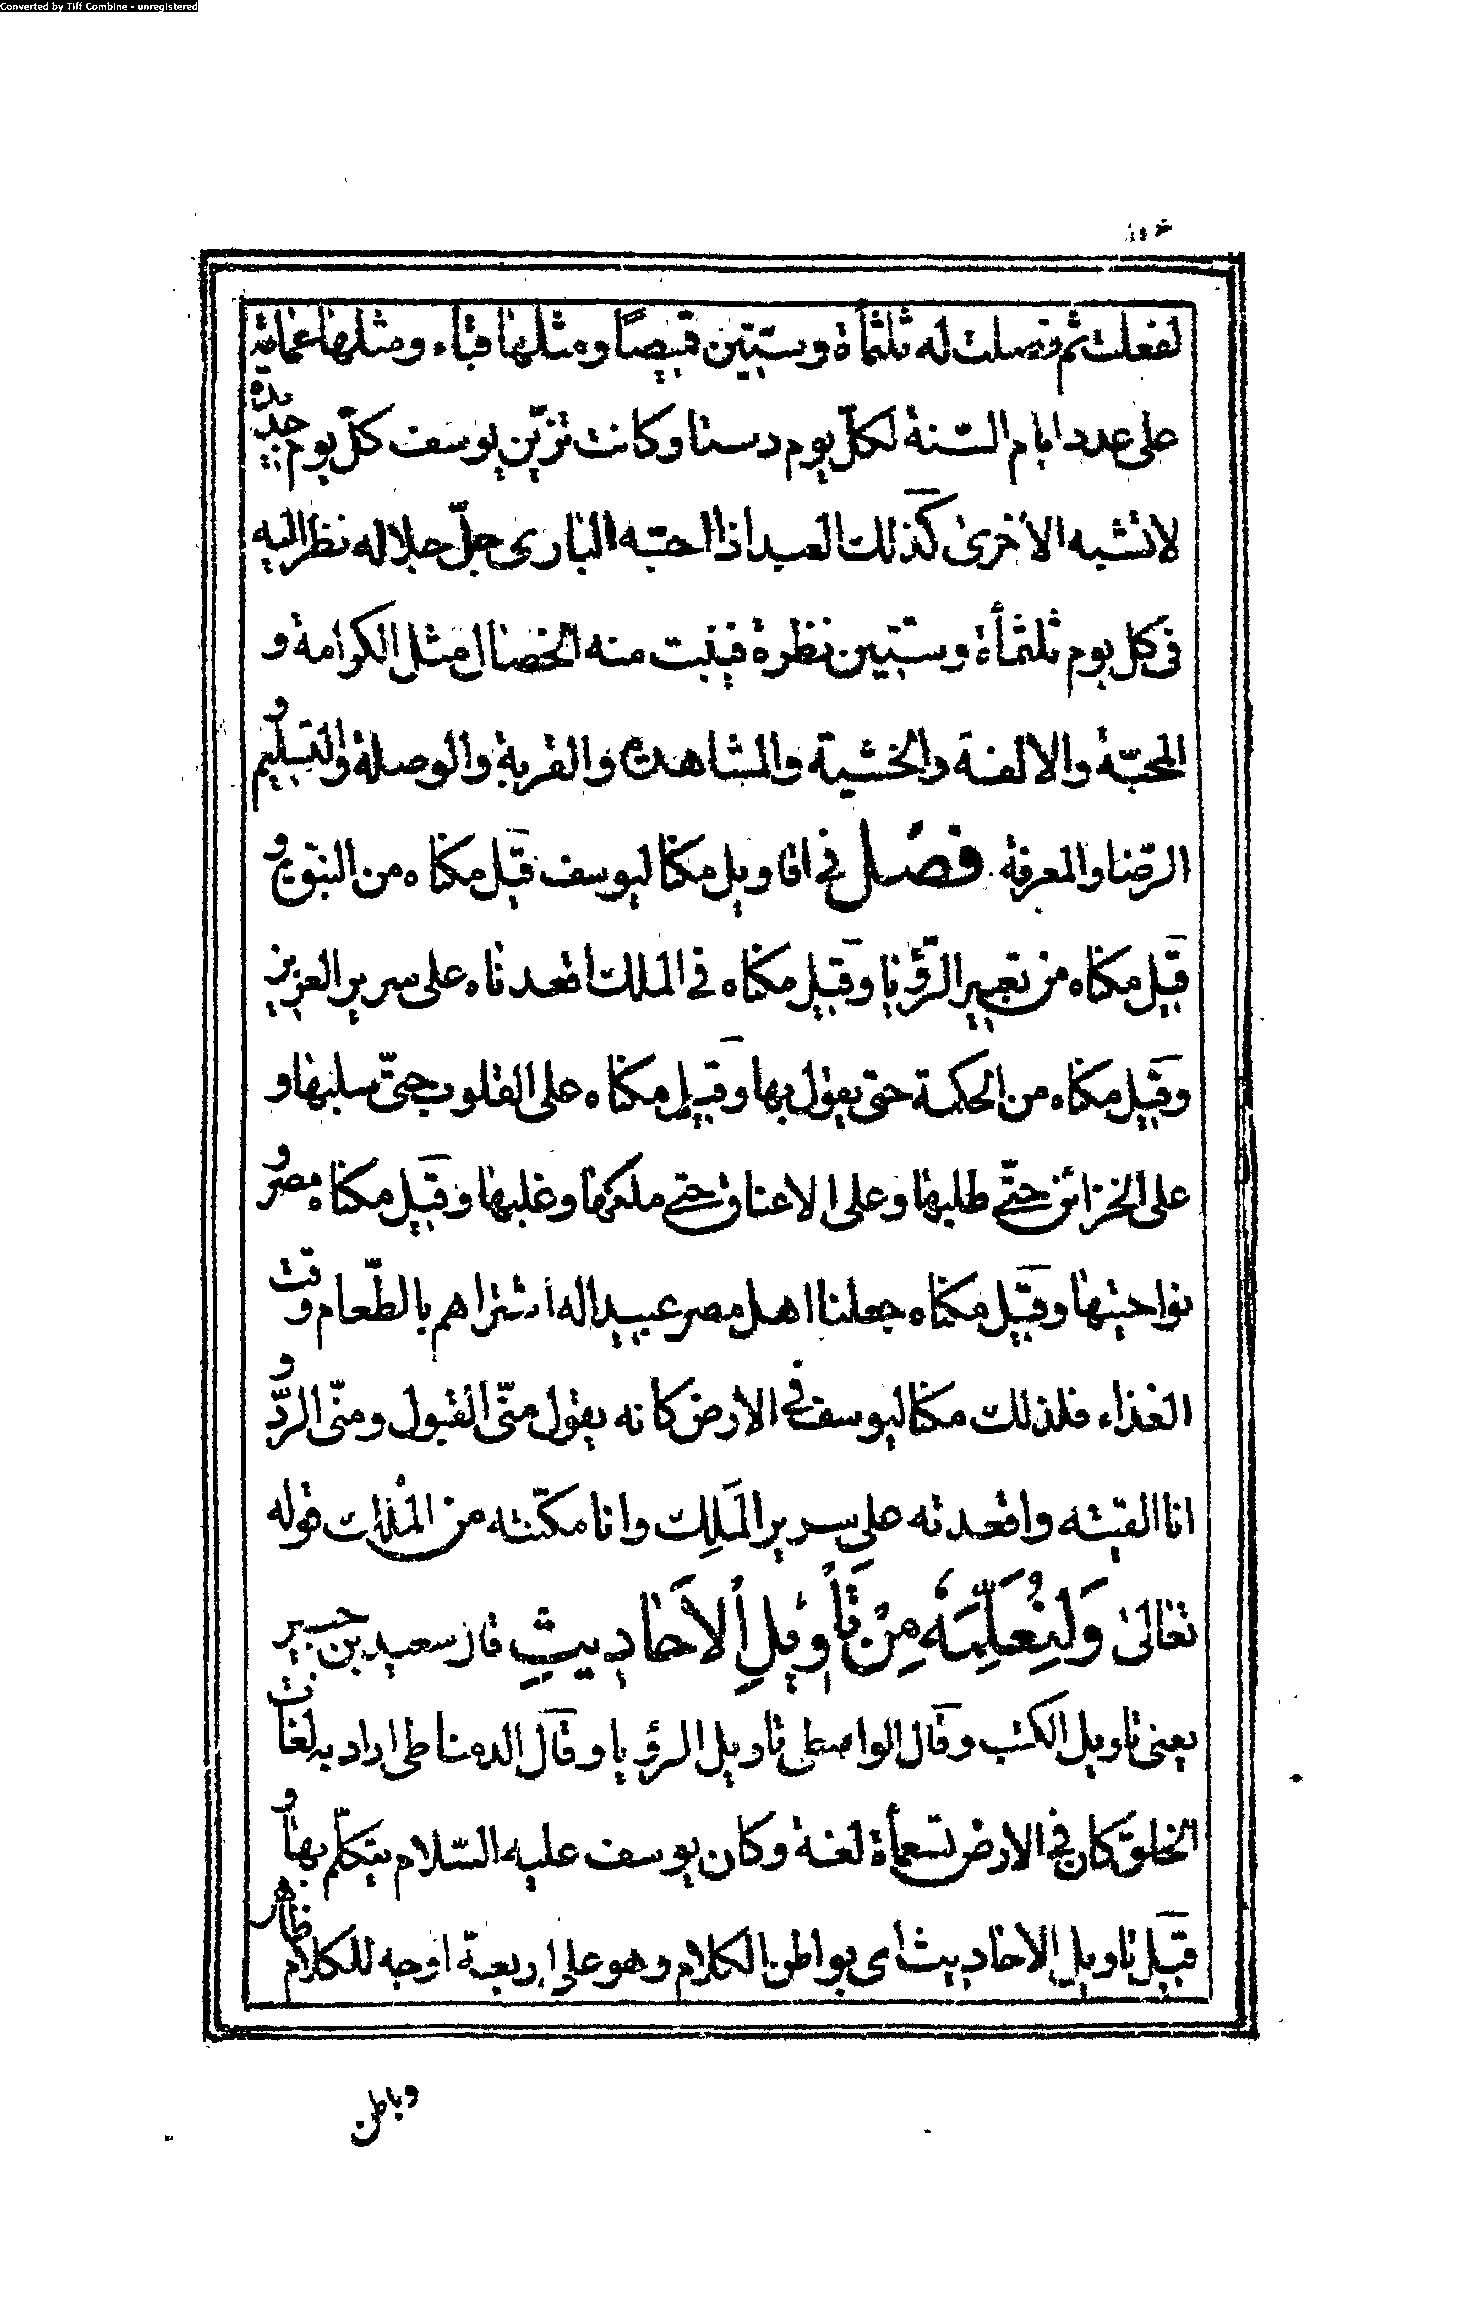 Converted by Tiff Combine - unregistered
١٠٦
لفعلت ثم فصلت له ثلثمأة وستين قميصًا ومثلها قباء ومثلها عمامة
على عدد ايام السّنة لكلّ يوم دستا وكانت تزيّن يوسف كلّ يوم جديدة
لا تشبه الأخرى كذلك العبد اذا احبّه البارى جلّ جلاله نظر اليه
فى كل يوم ثلثمأة وستين نظرة فينبت منه الخصال مثل الكرامة و
المحبّة والالفة والخشية والمشاهدة والقربة والوصلة والتسليم و
الرّضا والمعرفة فصل فى اقاويل مكنا ليوسف قيل مكناه من التتويج و
قيل مكناه من تعبير الرّؤيا وقيل مكناه فى الملك اقعدناه على سرير العزيز
وقيل مكناه من الحكمة حتى يقول بها وقيل مكناه على القلوب حتّى سلبها و
على الخزائن حتّى طلبها وعلى الاعناق حتى ملكها وغلبها وقيل مكناه مصر و
نواحيها وقيل مكناه جعلنا اهل مصر عبيدا له اشتراهم بالطّعام وقت
الغذاء فلذلك مكنا ليوسف فى الارض كانه يقول منّى القبول ومنّى الردّ و
انا القيته واقعدته على سرير الملك وانا مكنته من الملك قوله
تعالى وَلِنُعَلِّمَهُ مِنْ تَأْوِيلِ الأَحَادِيثِ قال سعيد بن جبير
يعنى تاويل الكتب وقال الواسطى تاويل الرؤيا وقال الدمناطى اراد به لغات
الخلق كان فى الارض تسعمأة لغة وكان يوسف عليه السّلام يتكلّم بها و
قيل تاويل الاحاديث اى بواطن الكلام وهو على اربعة اوجه للكلام ظاهر
وباطن